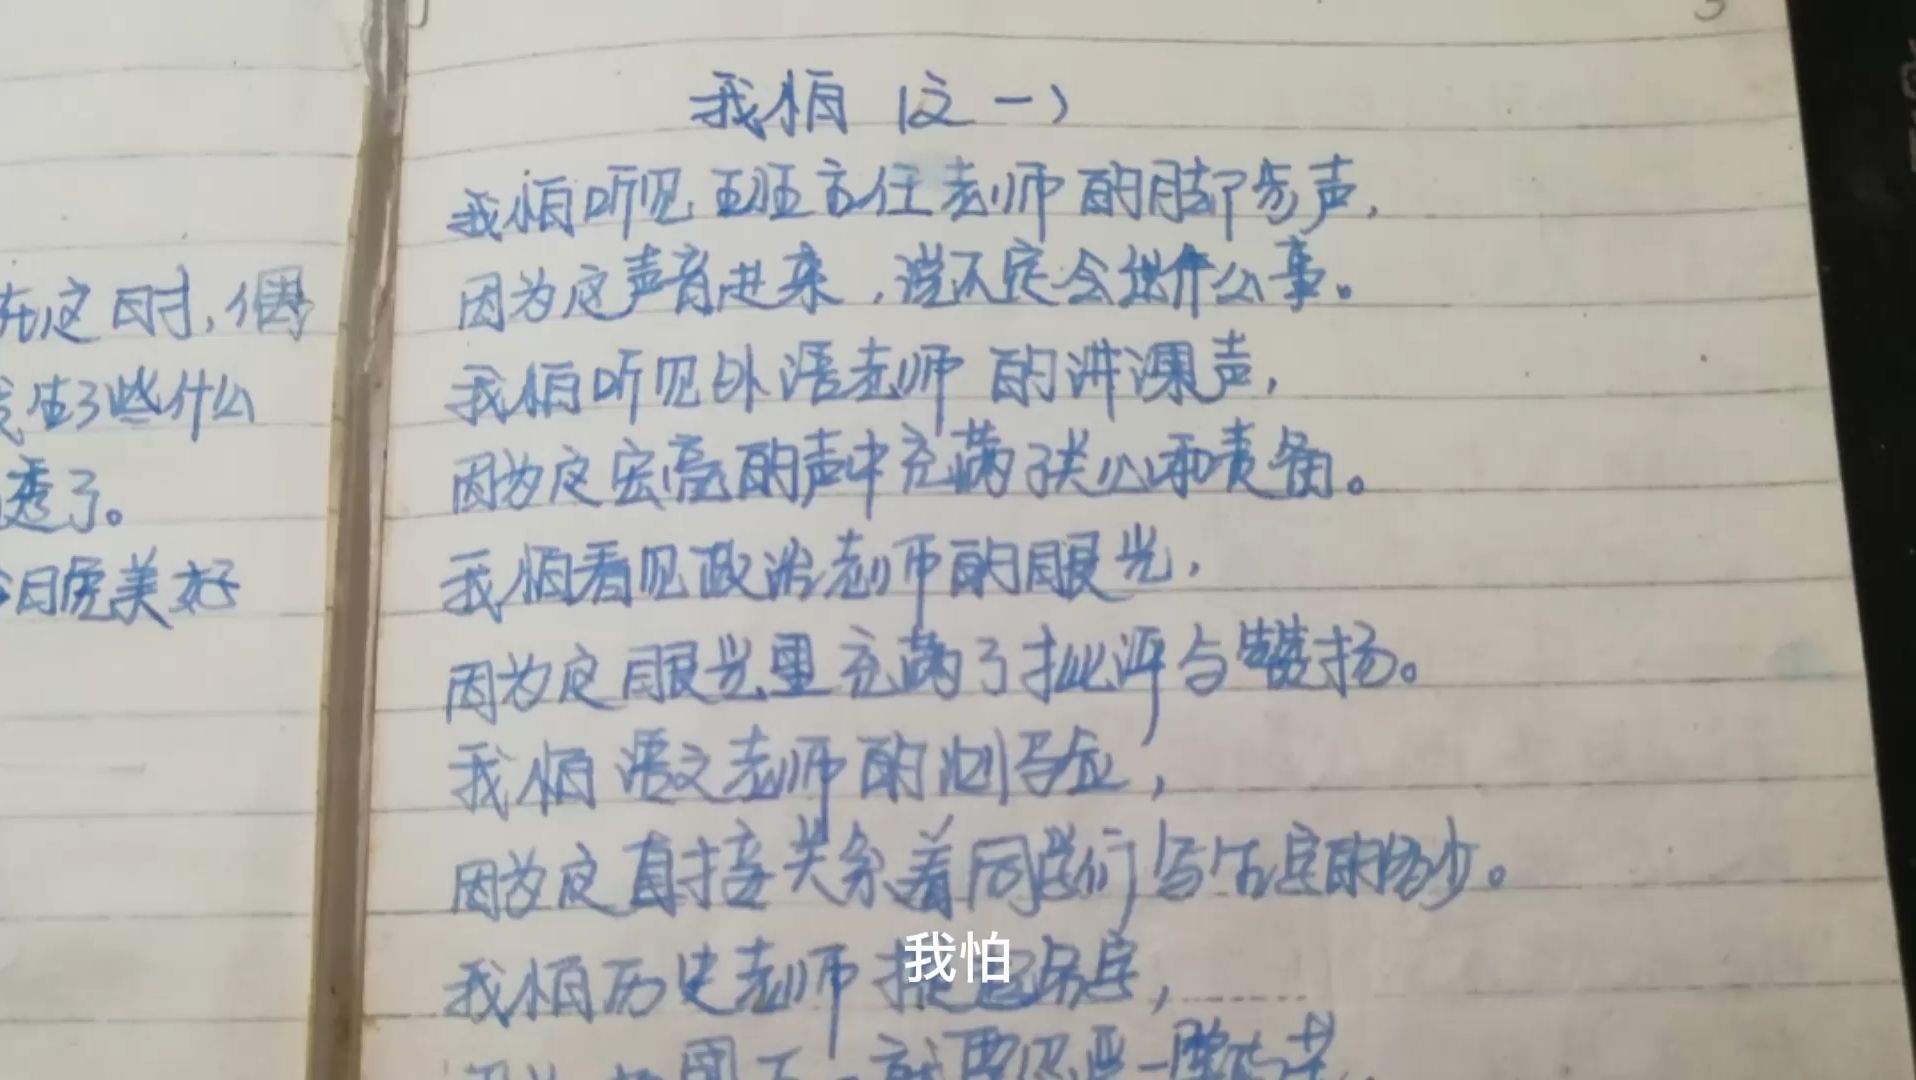 在这时，偶
生了些什么
透了。
今日虎美好
3
我怕（之一）
我怕听见班主任老师的脚步声，
因为这声音进来，说不定会出什么事。
我怕听见外语老师的讲课声，
因为这宏亮的声中充满了关心和责备。
我怕看见政治老师的眼光，
因为这眼光里充满了批评与赞扬。
我怕语文老师的测写
因为这直接关系着同学们写生字的多少。
我怕历史老师
我怕